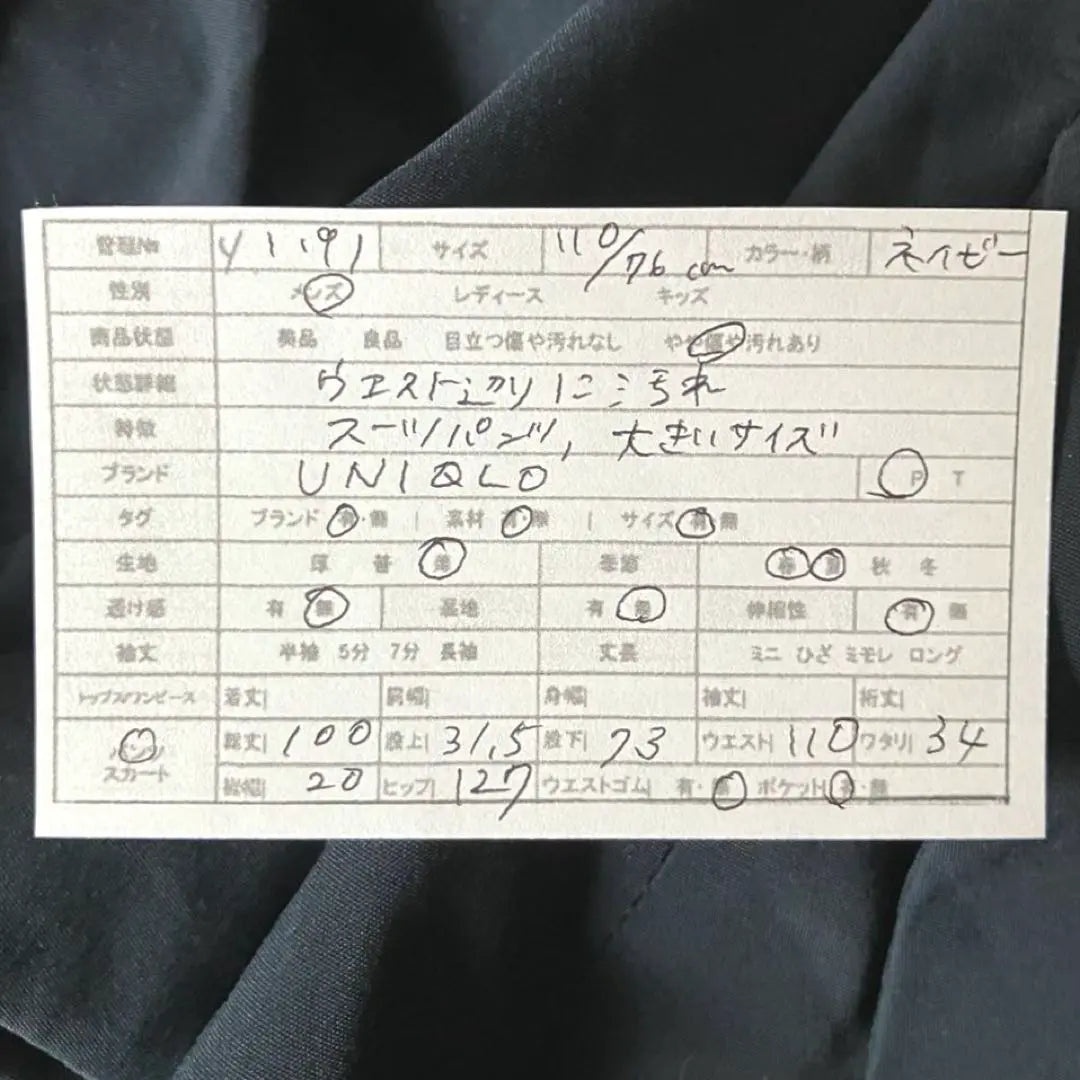 管理No Y1191 サイズ 110/76cm カラー・柄 ネイビー
性別 メンズ レディース キッズ
商品状態 美品 良品 目立つ傷や汚れなし やや傷や汚れあり
状態詳細 ウエスト辺りに汚れ
特徴 スーツパンツ, 大きいサイズ
ブランド UNIQLO P T
タグ ブランド 有・無 | 素材 有・無 | サイズ 有・無
生地 厚 普 薄 季節 春 夏 秋 冬
透け感 有 無 裏地 有 無 伸縮性 有 無
袖丈 半袖 5分 7分 長袖 丈長 ミニ ひざ ミモレ ロング
トップス/ワンピース 着丈| 肩幅| 身幅| 袖丈| 裄丈|
パンツ 総丈| 100 股上| 31.5 股下| 73 ウエスト| 110 ワタリ| 34
スカート 裾幅| 20 ヒップ| 127 ウエストゴム| 有・無 ポケット| 有・無